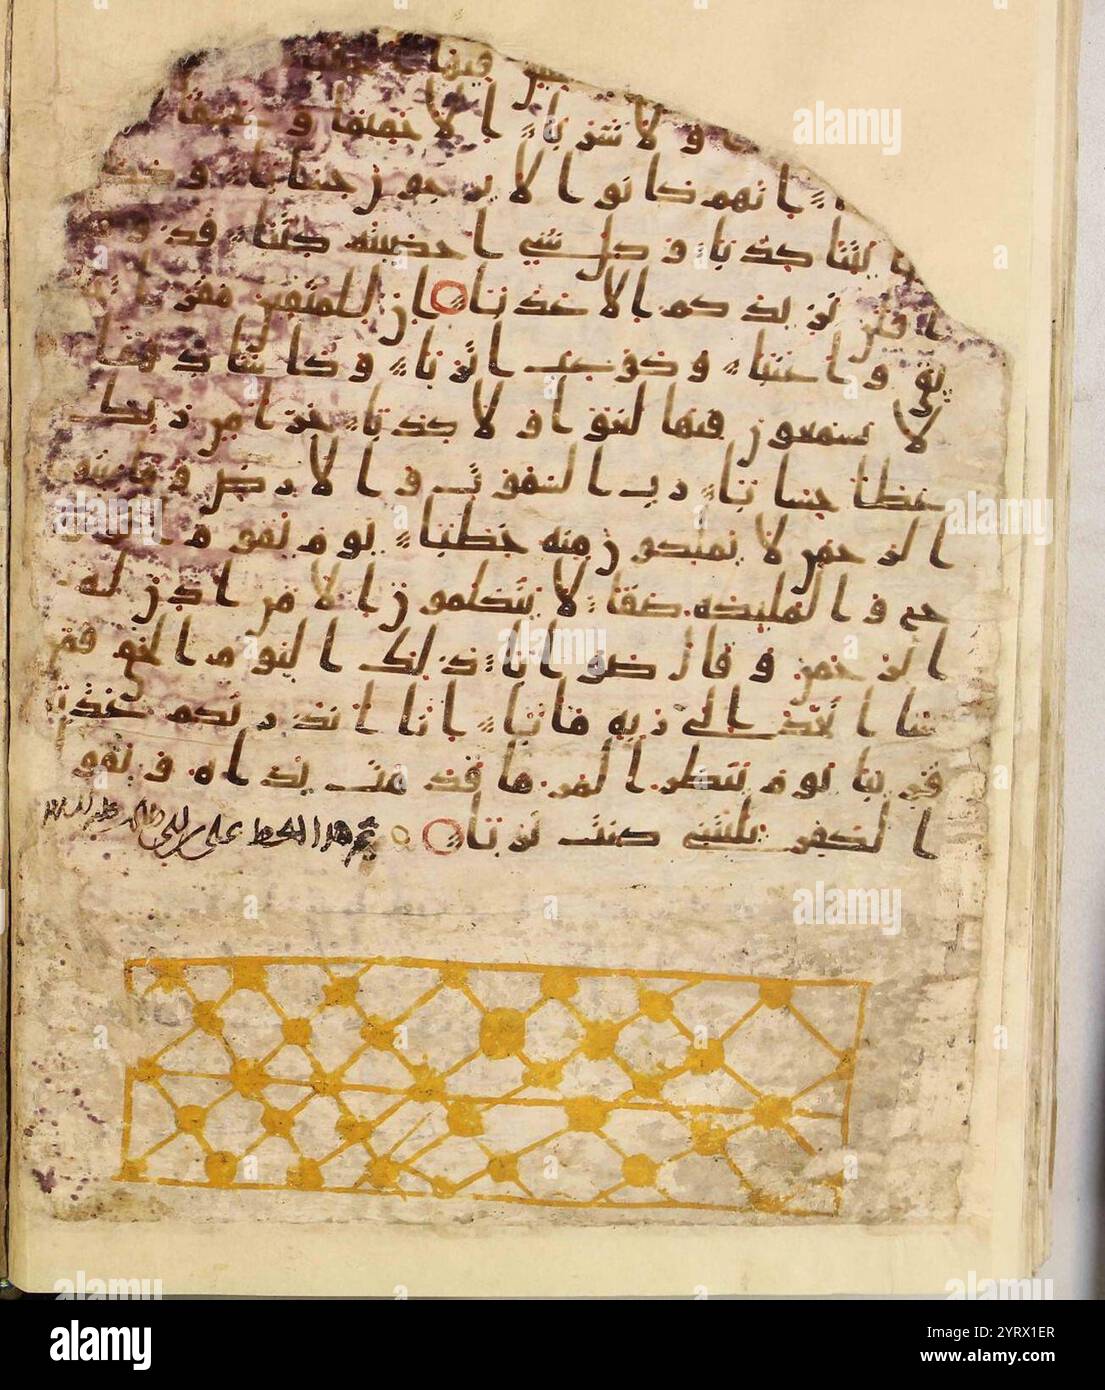 فيها
ولا شرابا الا حميما وغساقا
انهم كانوا لا يرجون حسابا وكذ
بوا بايتنا كذابا وكل شي احصينه كتبا فذوقو
ا فلن نزيدكم الا عذابا ان للمتقين مفازا حدا
يق واعنبا وكواعب اترابا وكاسا دهاقا
لا يسمعون فيها لغوا ولا كذابا جزا من ربك
عطا حسابا رب السموت والارض وما بينهما
الرحمن لا يملكون منه خطابا يوم يقوم الرو
ح والمليكه صفا لا يتكلمون الا من اذن له
الرحمن وقال صوابا ذلك اليوم الحق فمن
شا اتخذ الى ربه مابا انا انذرنكم عذابا
قريبا يوم ينظر المر ما قدمت يداه ويقول
الكفر يليتني كنت تربا
تم هذا الخط علي بن ابي طالب عليه السلام
alamy
Image ID: 2YRX1ER
www.alamy.com